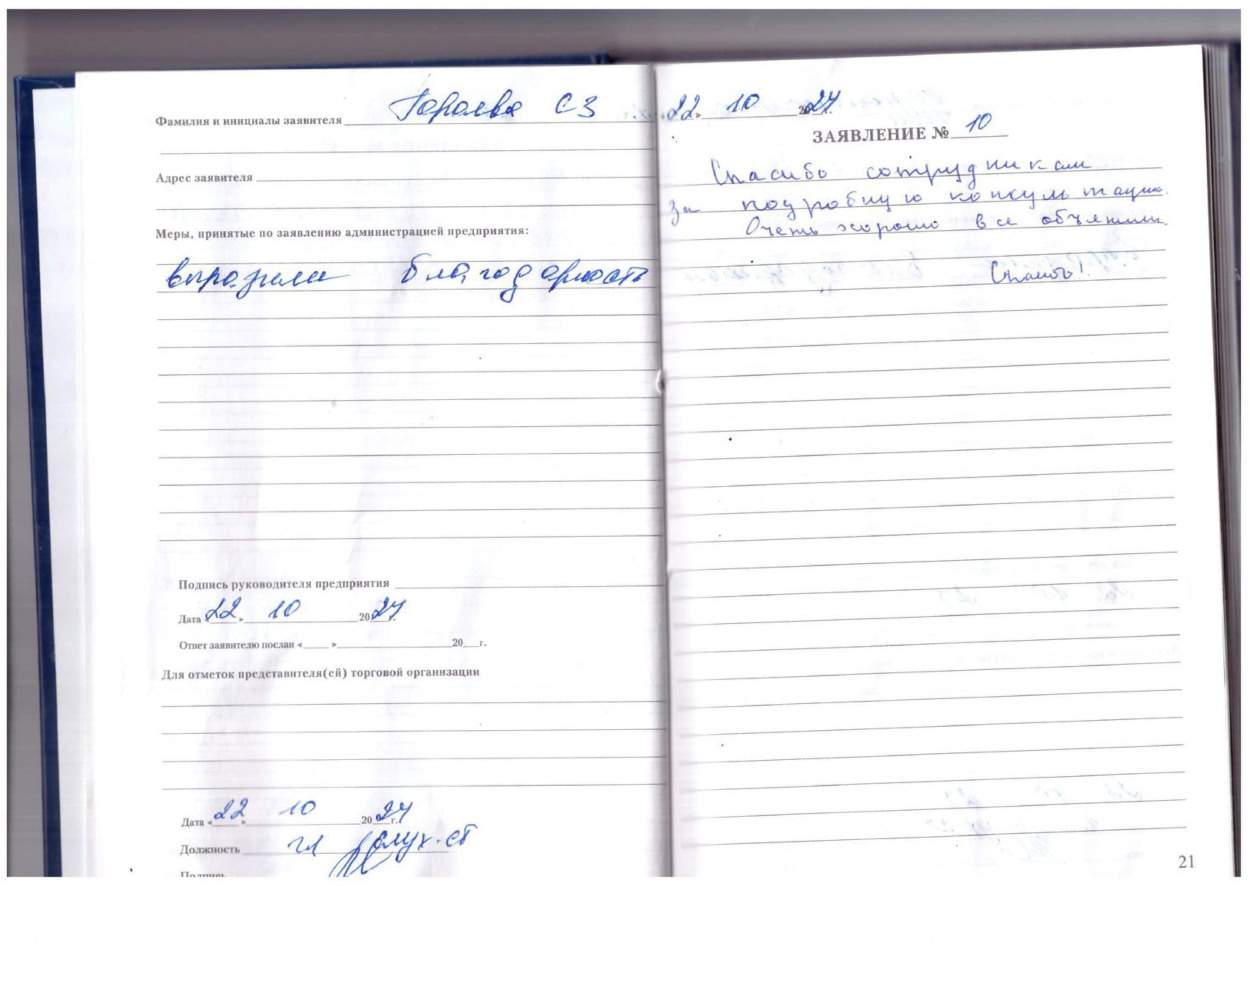 Фамилия и инициалы заявителя С З
Адрес заявителя
Меры, принятые по заявлению администрацией предприятия:
выразили благодарность
Подпись руководителя предприятия
Дата «22» 10 2024 г.
Ответ заявителю послан « » 20 г.
Для отметок представителя(ей) торговой организации
Дата «22» 10 2024 г.
Должность гл
Подпись
22» 10 2024 г.
ЗАЯВЛЕНИЕ № 10
Спасибо сотрудникам
За подробную
Очень хорошо все
Спасибо!
21